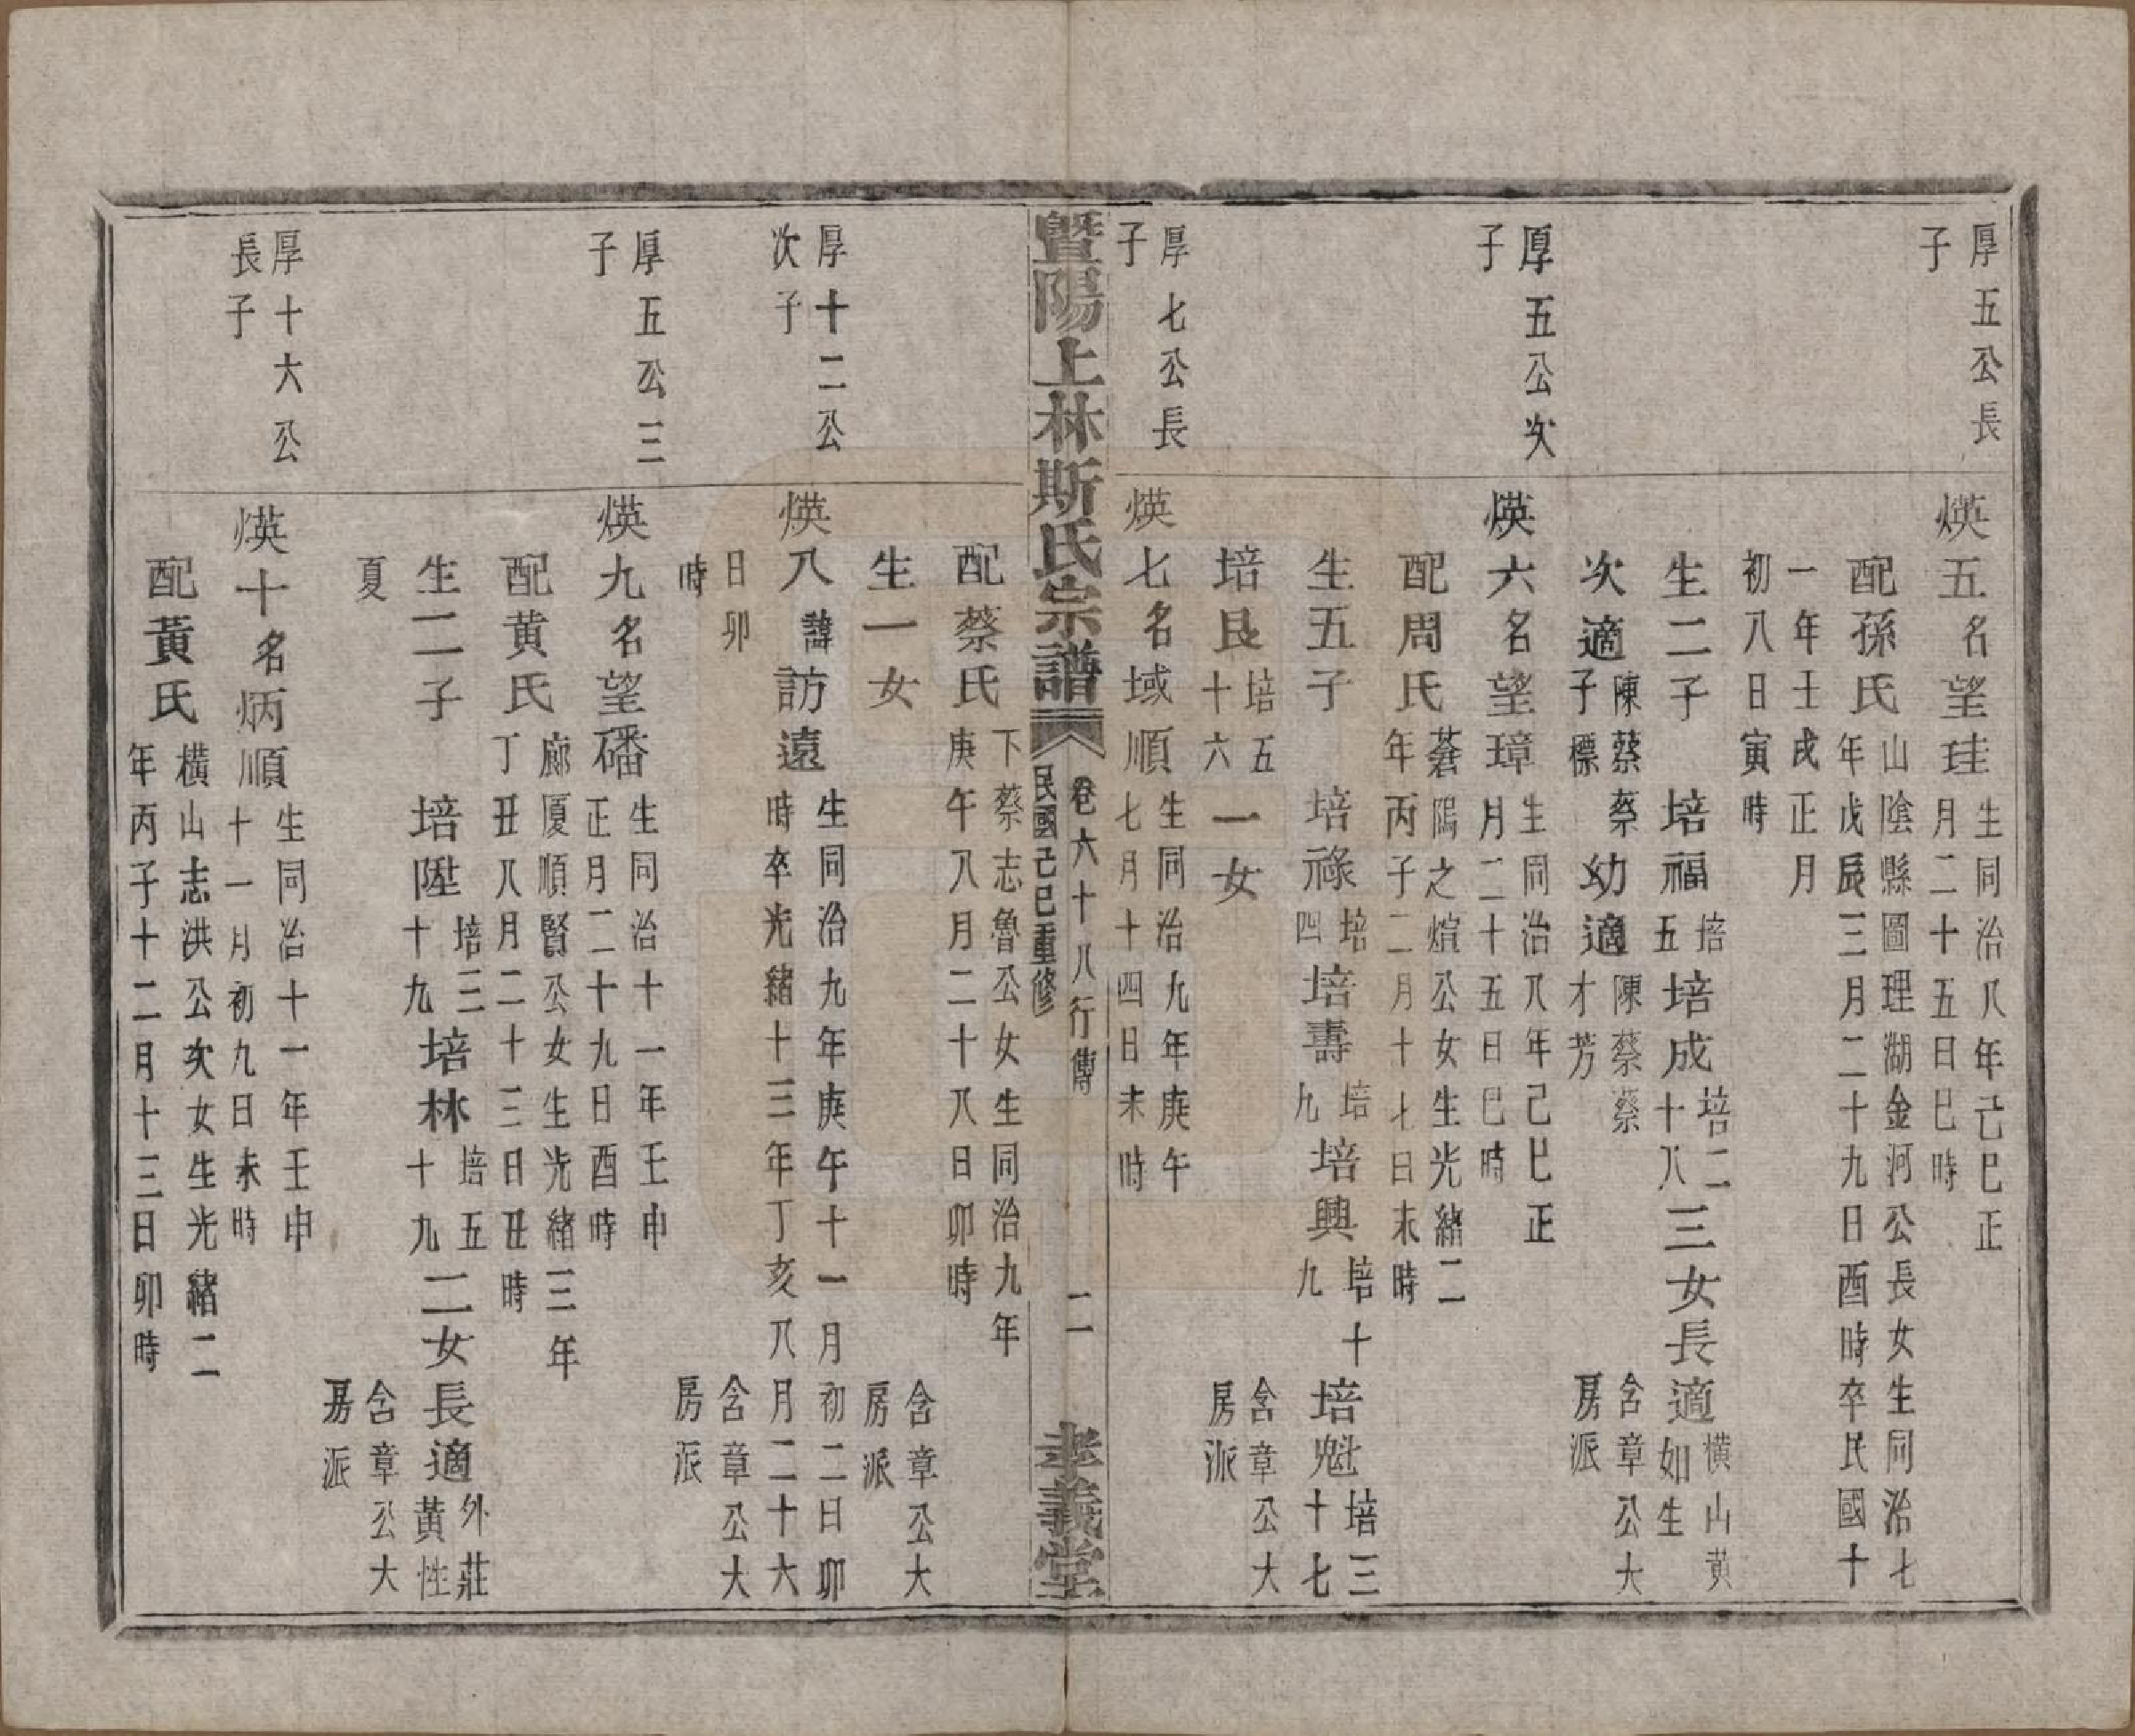 厚五公長
子
煐五名望珪生同治八年己巳正
月二十五日巳時
配孫氏山陰縣圖理湖金河公長女生同治七
年戊辰三月二十九日酉時卒民國十
一年壬戌正月
初八日寅時
生二子 培福培五 培成培二十八 三女長適橫山黃如生
次適陳蔡蔡子標 幼適陳蔡蔡才芳 含章公大房派
厚五公次
子
煐六名望璋生同治八年己巳正
月二十五日巳時
配周氏蒼塢之煊公女生光緒二
年丙子二月十七日未時
生五子 培祿培四 培壽培九 培興培十九 培魁培三十七
培艮培五十六 一女 含章公大房派
厚七公長
子
煐七名域順生同治九年庚午
七月十四日未時
暨陽上林斯氏宗譜
卷六十八行傳
民國己巳重修
二
孝義堂
配蔡氏下蔡志魯公女生同治九年
庚午八月二十八日卯時
生一女 含章公大房派
厚十二公
次子
煐八諱訪遠生同治九年庚午十一月初二日卯
時卒光緒十三年丁亥八月二十六
日卯
時 含章公大房派
厚五公三
子
煐九名望磻生同治十一年壬申
正月二十九日酉時
配黃氏廊厦順賢公女生光緒三年
丁丑八月二十三日丑時
生二子 培陞培三十九 培林培五十九 二女長適外莊黃性
夏 含章公大房派
厚十六公
長子
煐十名炳順生同治十一年壬申
十一月初九日未時
配黃氏橫山志洪公次女生光緒二
年丙子十二月十三日卯時